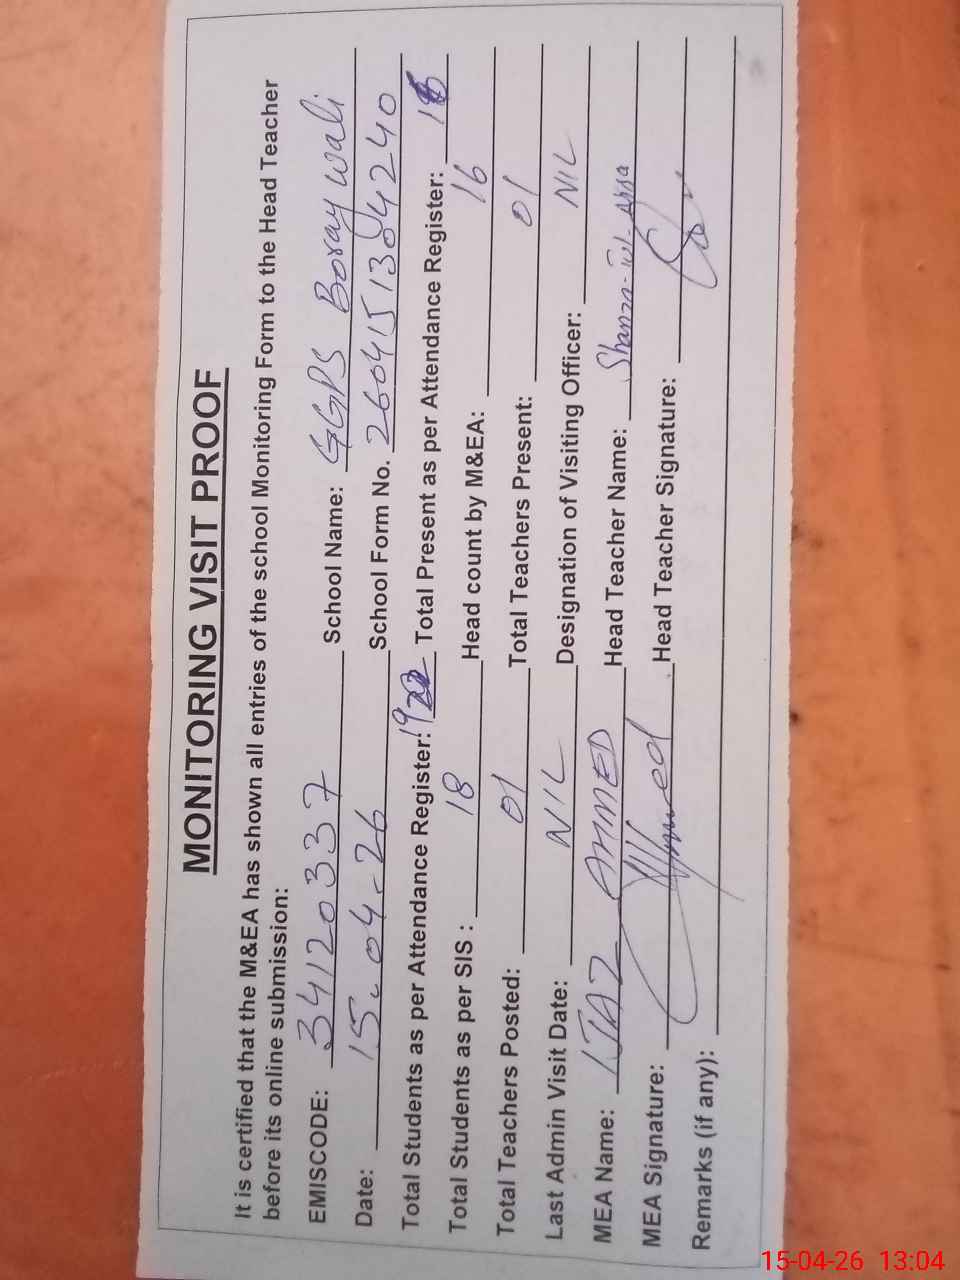 MONITORING VISIT PROOF
It is certified that the M&EA has shown all entries of the school Monitoring Form to the Head Teacher
before its online submission:
EMISCODE: 34120337 School Name: GGPS Boray wali
Date: 15-04-26 School Form No. 260415138 4240
Total Students as per Attendance Register: 19 Total Present as per Attendance Register: 16
Total Students as per SIS : 18 Head count by M&EA: 16
Total Teachers Posted: 01 Total Teachers Present: 01
Last Admin Visit Date: NIL Designation of Visiting Officer: NIL
MEA Name: IJAZ AHMED Head Teacher Name: Shanza-tul-Aqsa
MEA Signature: Ahmed Head Teacher Signature:
Remarks (if any):
15-04-26 13:04